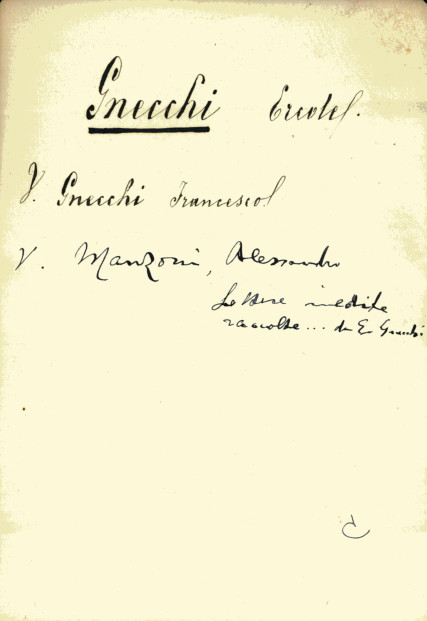 Gnecchi Ercole.
V. Gnecchi Francesco
V. Manzoni, Alessandro
Lettere inedite
raccolte... da E. Gnecchi
C